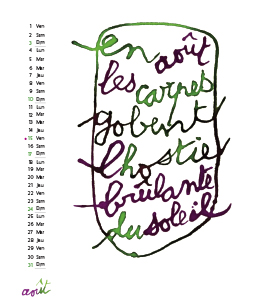 1 Ven
2 Sam
3 Dim
4 Lun
5 Mar
6 Mer
7 Jeu
8 Ven
9 Sam
10 Dim
11 Lun
12 Mar
13 Mer
14 Jeu
15 Ven
16 Sam
17 Dim
18 Lun
19 Mar
20 Mer
21 Jeu
22 Ven
23 Sam
24 Dim
25 Lun
26 Mar
27 Mer
28 Jeu
29 Ven
30 Sam
31 Dim
août
En août
les
carpes
gobent
l'hostie
brûlante
du soleil